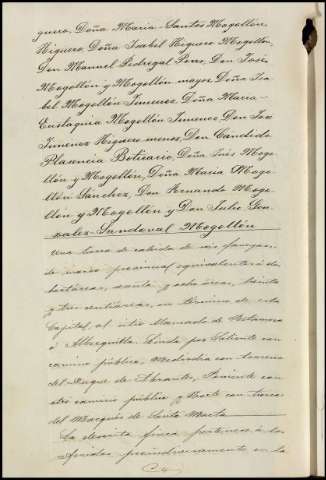 guero, Doña Maria-Santos Mogollon
Higuero, Doña Isabel Higuero Mogollon,
Don Manuel Pedregal Perez, Don José
Mogollón y Mogollón mayor, Doña Isa-
bel Mogollón Jimenez, Doña Maria-
Eustaquia Mogollón Jimenez, Don José
Jimenez Higuero menor, Don Candido
Plasencia Boticario, Doña Inés Mogo-
llón y Mogollón, Doña Maria Mogo-
llón Sánchez, Don Fernando Mogo-
llón y Mogollón y Don Julio Gon-
zalez-Sandoval Mogollón
Una tierra de cabida de seis fanegas,
de marco provincial equivalentes á dos
hectáreas, y ocho áreas,
y tres centiáreas, en término de esta
Capital, al sitio llamado de
ó Alberquilla. Linda por Saliente con
camino público, Mediodía con terreno
del Duque de Abrantes, Poniente con
otro camino público y Norte con tierras
del Marqués de Santa Marta
La descrita finca pertenece á los
proindivisamente en la